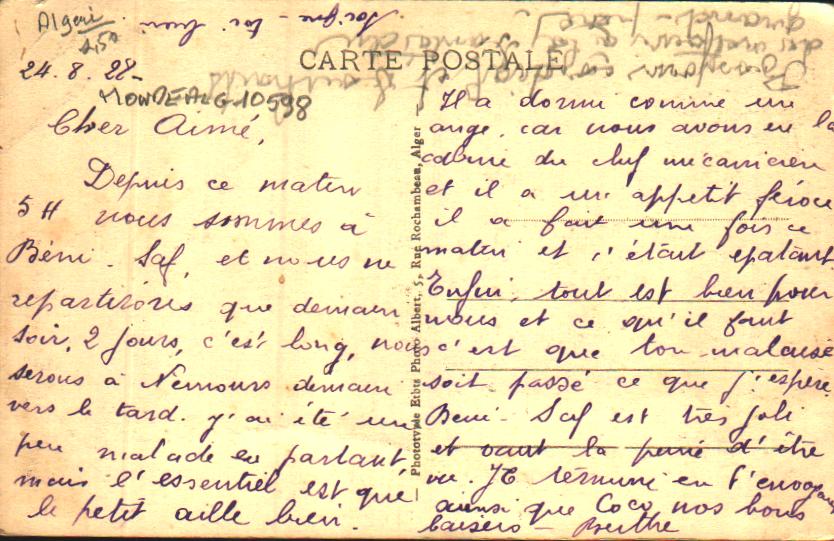 Algeri
24.8.28-
CARTE POSTALE
MONDEALG10598
Cher Aimé,
Depuis ce matin
5 H nous sommes à
Béni-Saf, et nous ne
repartirons que demain
soir, 2 jours, c'est long, nous
serons à Nemours demain
vers le tard. J'ai été un
peu malade en partant,
mais l'essentiel est que
le petit aille bien.
Phototypie Etbts Photo Albert, 5, Rue Rochambeau, Alger
Il a dormi comme un
ange, car nous avons eu la
cabine du chef mécanicien
et il a un appetit féroce
il a fait une fois ce
matin et c'était epatant
Enfin, tout est bien pour
nous et ce qu'il faut
c'est que ton malaise
soit passé ce que j'espere
Beni-Saf est très joli
et vaut la peine d'être
vu. Je termine en t'envoyant
ainsi que Coco nos bons
baisers - Berthe
Soigne-toi bien
Bonjour
grand-père